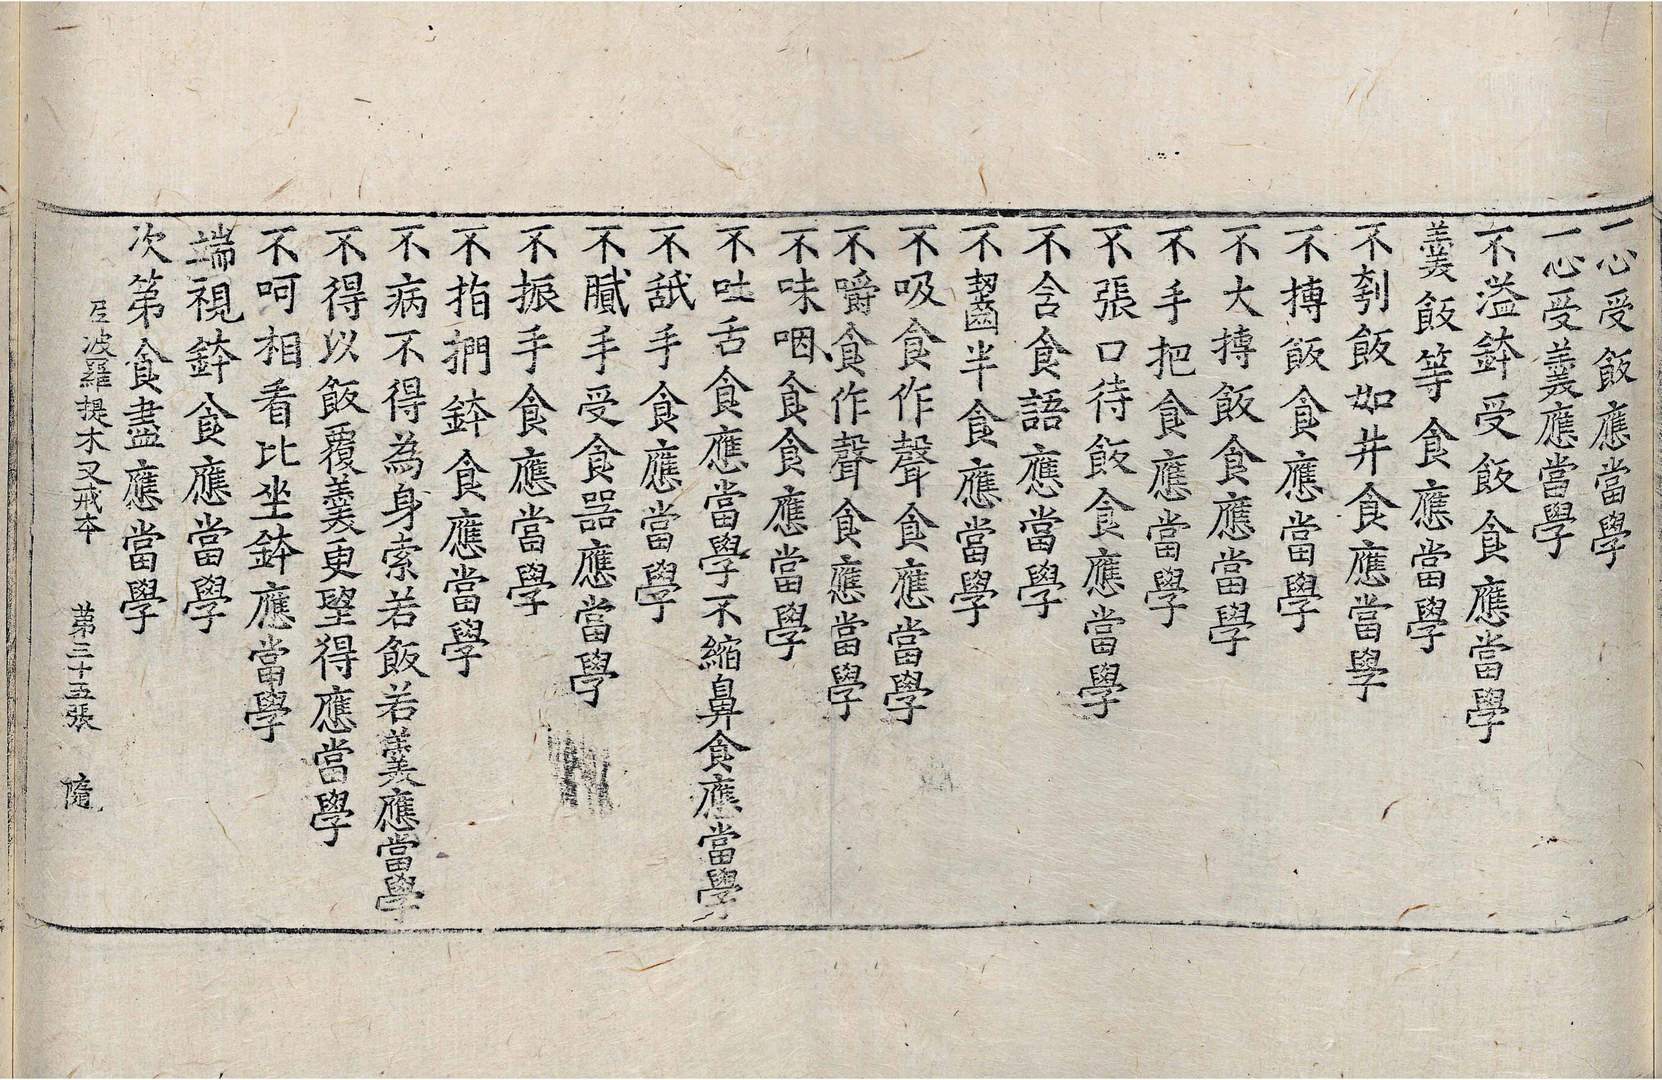 一心受飯應當學
一心受羹應當學
不溢鉢受飯食應當學
羹飯等食應當學
不刳飯如井食應當學
不摶飯食應當學
不大摶飯食應當學
不手把食應當學
不張口待飯食應當學
不含食語應當學
不齧半食應當學
不吸食作聲食應當學
不嚼食作聲食應當學
不味咽食食應當學
不吐舌食應當學不縮鼻食應當學
不舐手食應當學
不膩手受食器應當學
不振手食應當學
不指捫鉢食應當學
不病不得為身索若飯若羹應當學
不得以飯覆羹更望得應當學
不呵相看比坐鉢應當學
端視鉢食應當學
次第食盡應當學
尼波羅提木叉戒本 第三十五張 隨